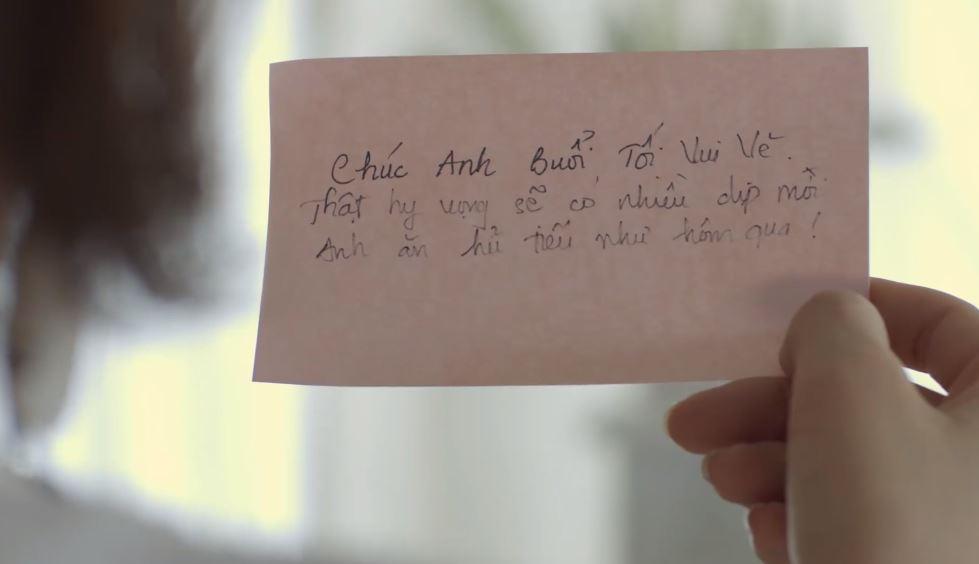 Chúc Anh Buổi Tối Vui Vẻ.
Thật hy vọng sẽ có nhiều dịp mời
Anh ăn hủ tiếu như hôm qua!